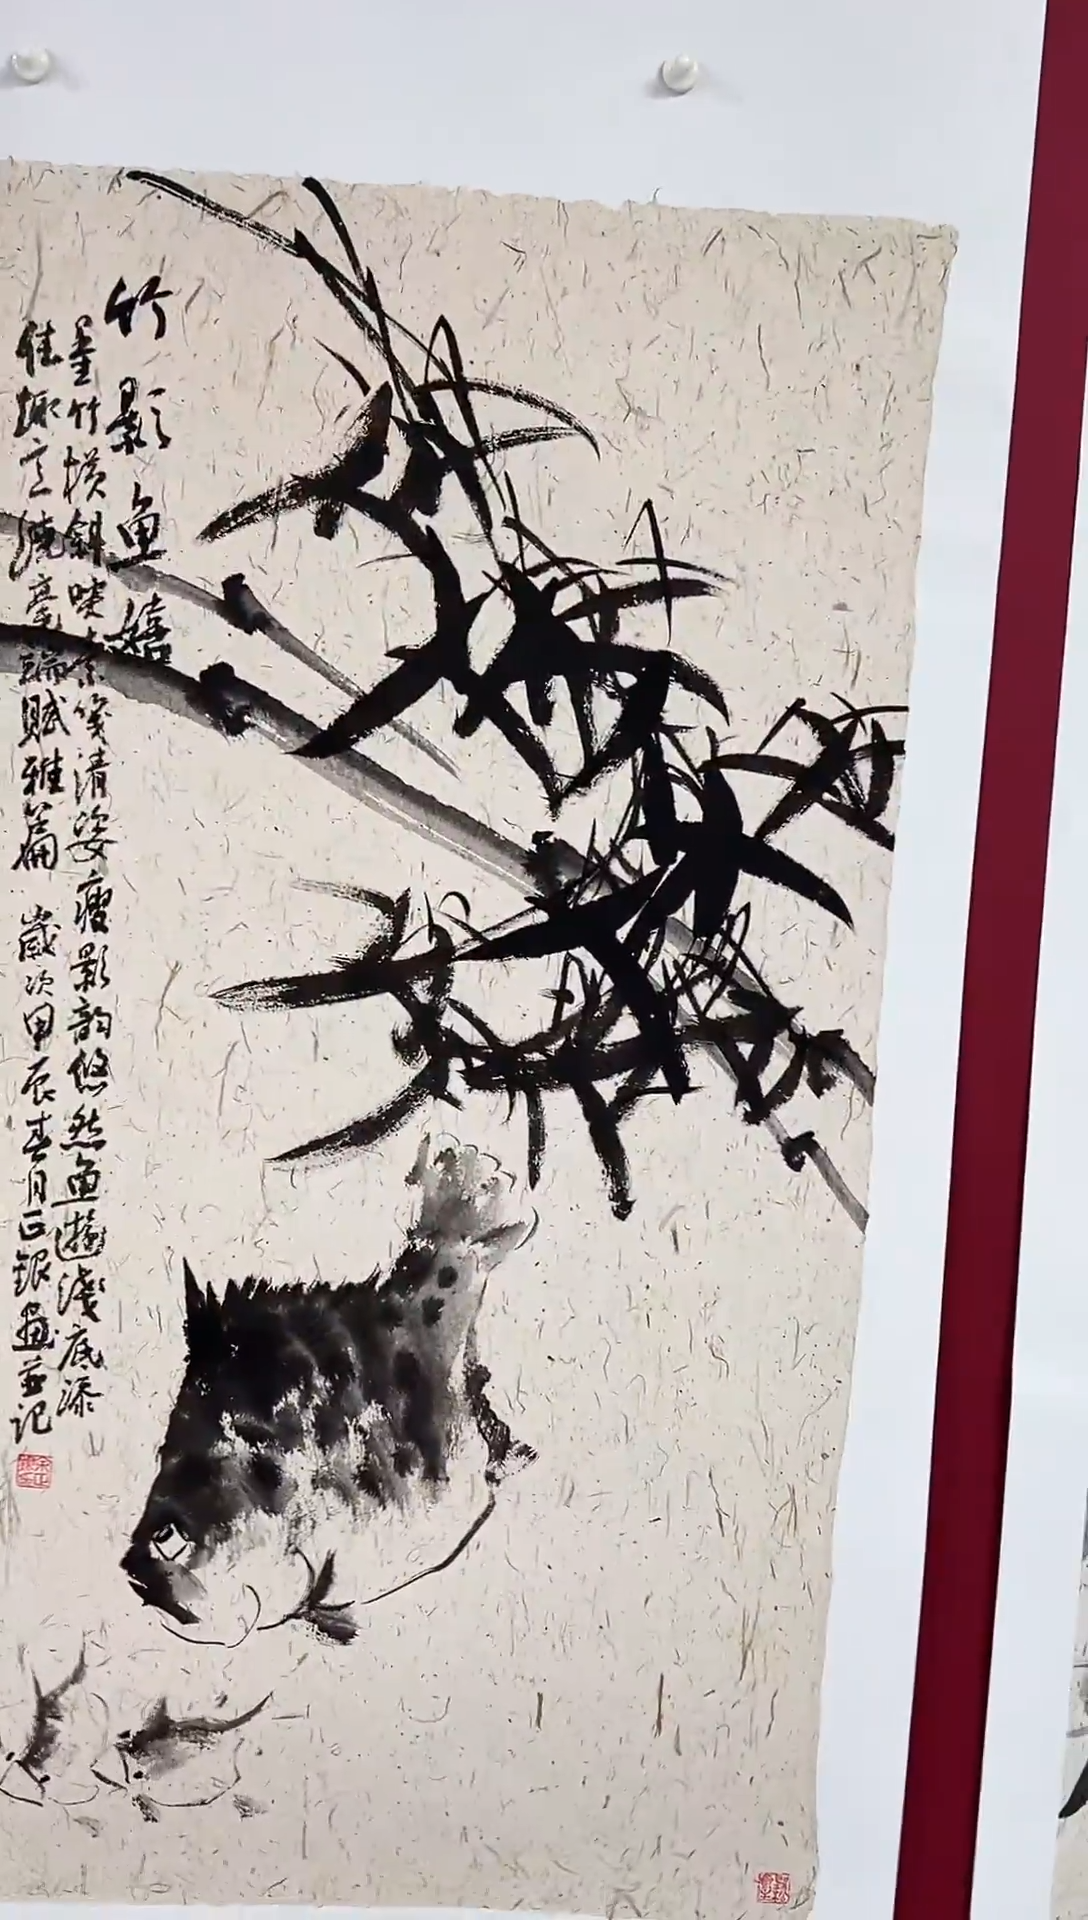 竹影鱼嬉
墨竹横斜映素笺清姿瘦影韵悠然鱼游浅底添
佳趣意绕毫端赋雅篇 岁次甲辰春月正银画并记